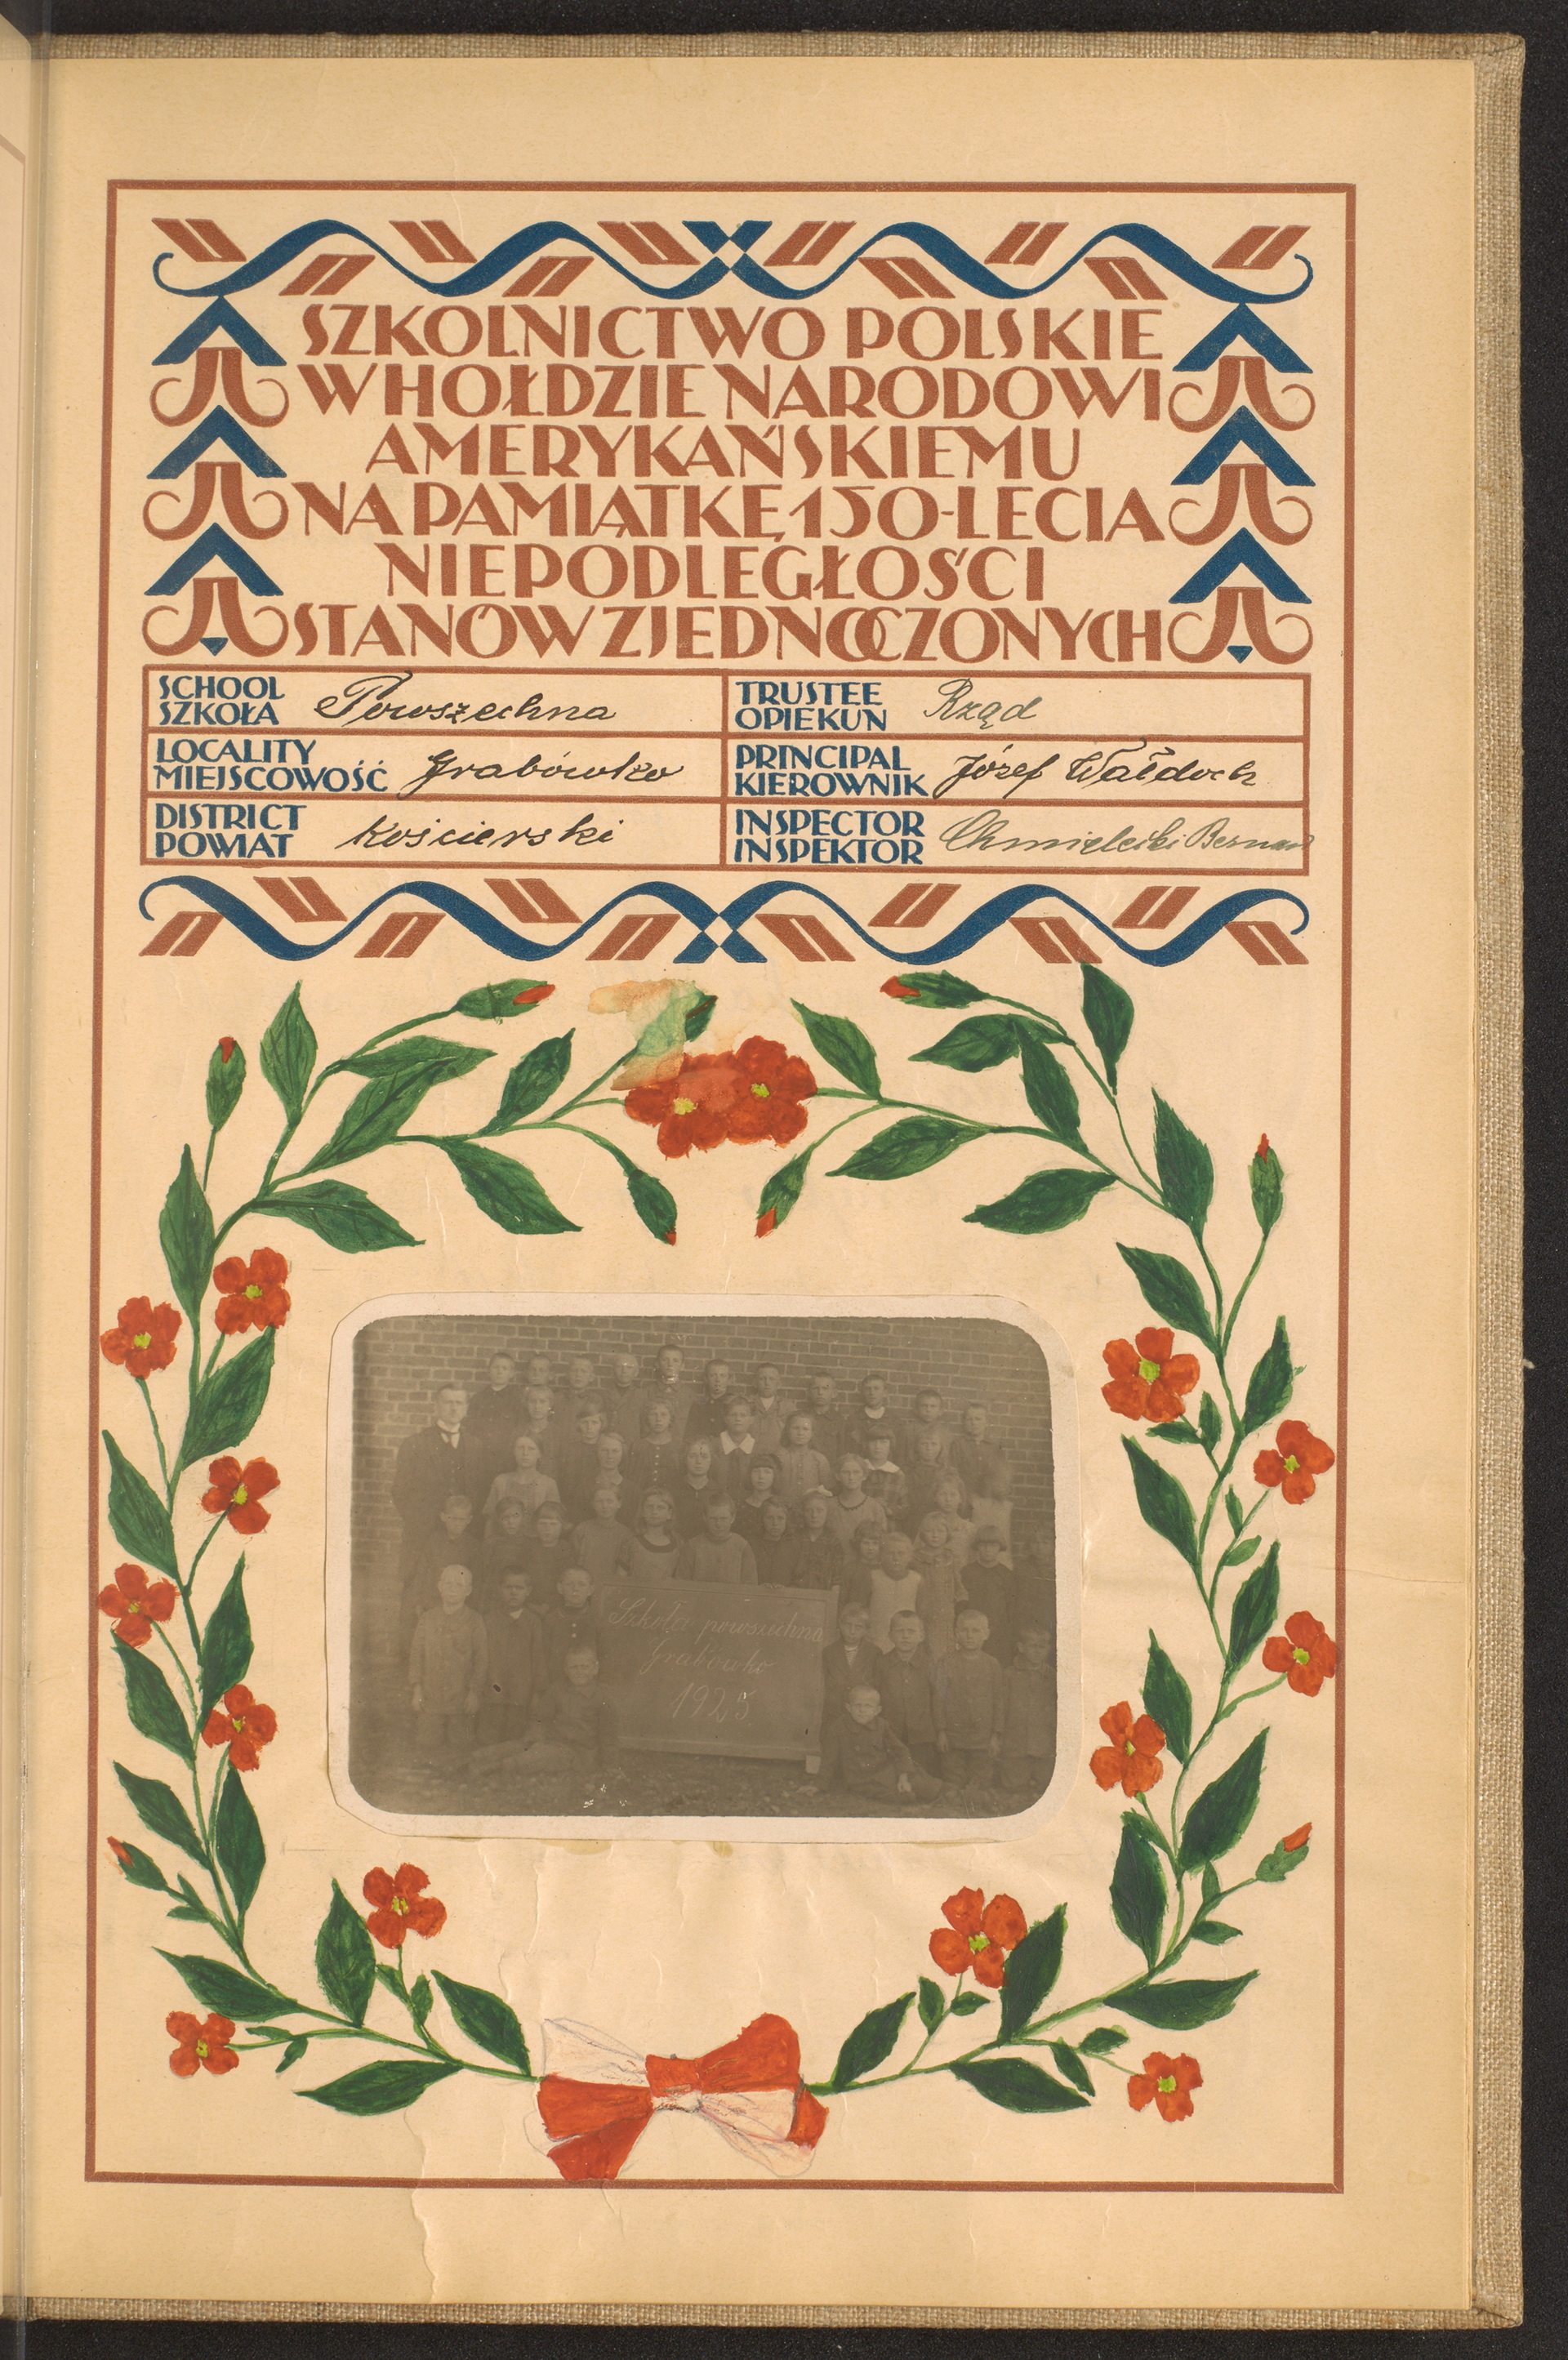 SZKOLNICTWO POLSKIE
W HOŁDZIE NARODOWI
AMERYKAŃSKIEMU
NA PAMIĄTKĘ 150-LECIA
NIEPODLEGŁOŚCI
STANÓW ZJEDNOCZONYCH
SCHOOL
SZKOŁA Powszechna
TRUSTEE
OPIEKUN Rząd
LOCALITY
MIEJSCOWOŚĆ Grabówko
PRINCIPAL
KIEROWNIK Józef Wałdoch
DISTRICT
POWIAT Kościerski
INSPECTOR
INSPEKTOR Chmielecki Bernard
Szkoła powszechna
Grabówko
1925